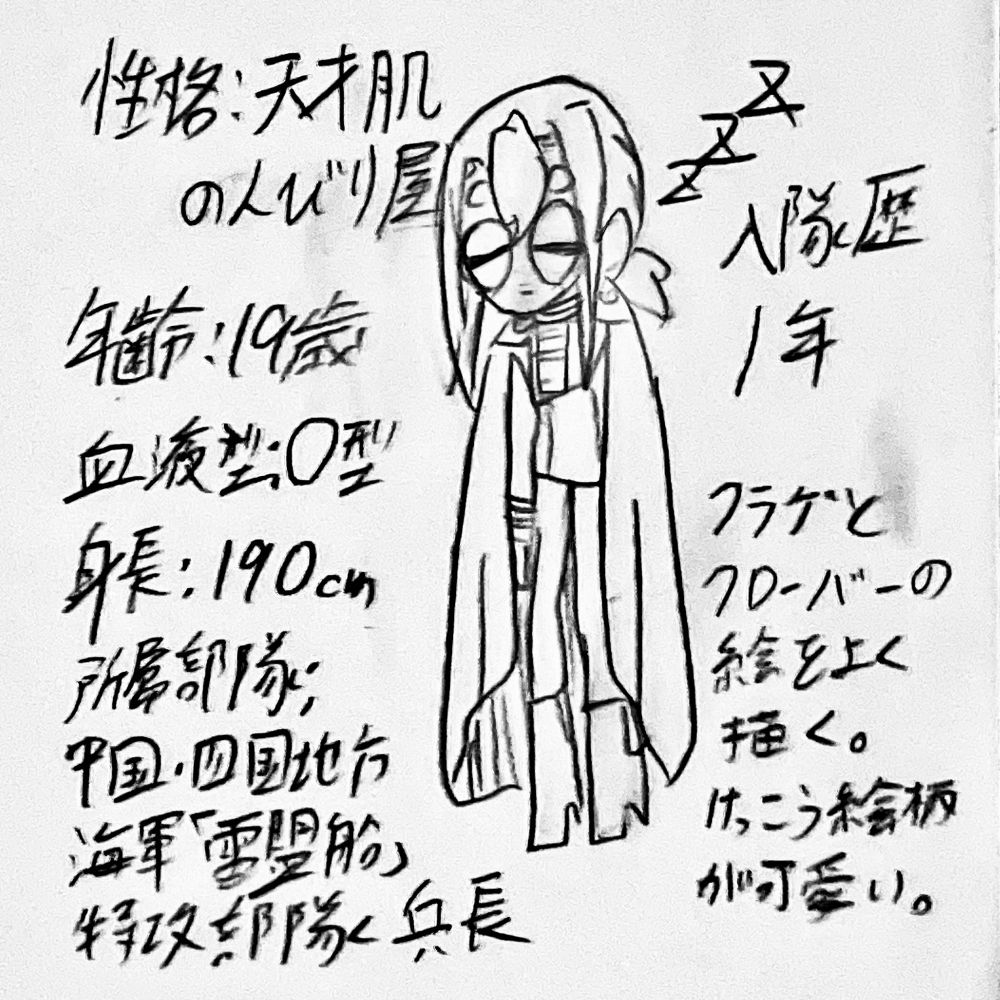 性格:天才肌
のんびり屋
年齢:19歳
血液型:O型
身長:190cm
所属部隊;
中国・四国地方
海軍「雷盟船」
特攻部隊 兵長
Z
Z
Z
入隊歴
1年
クラゲと
クローバーの
絵をよく
描く。
けっこう絵柄
が可愛い。